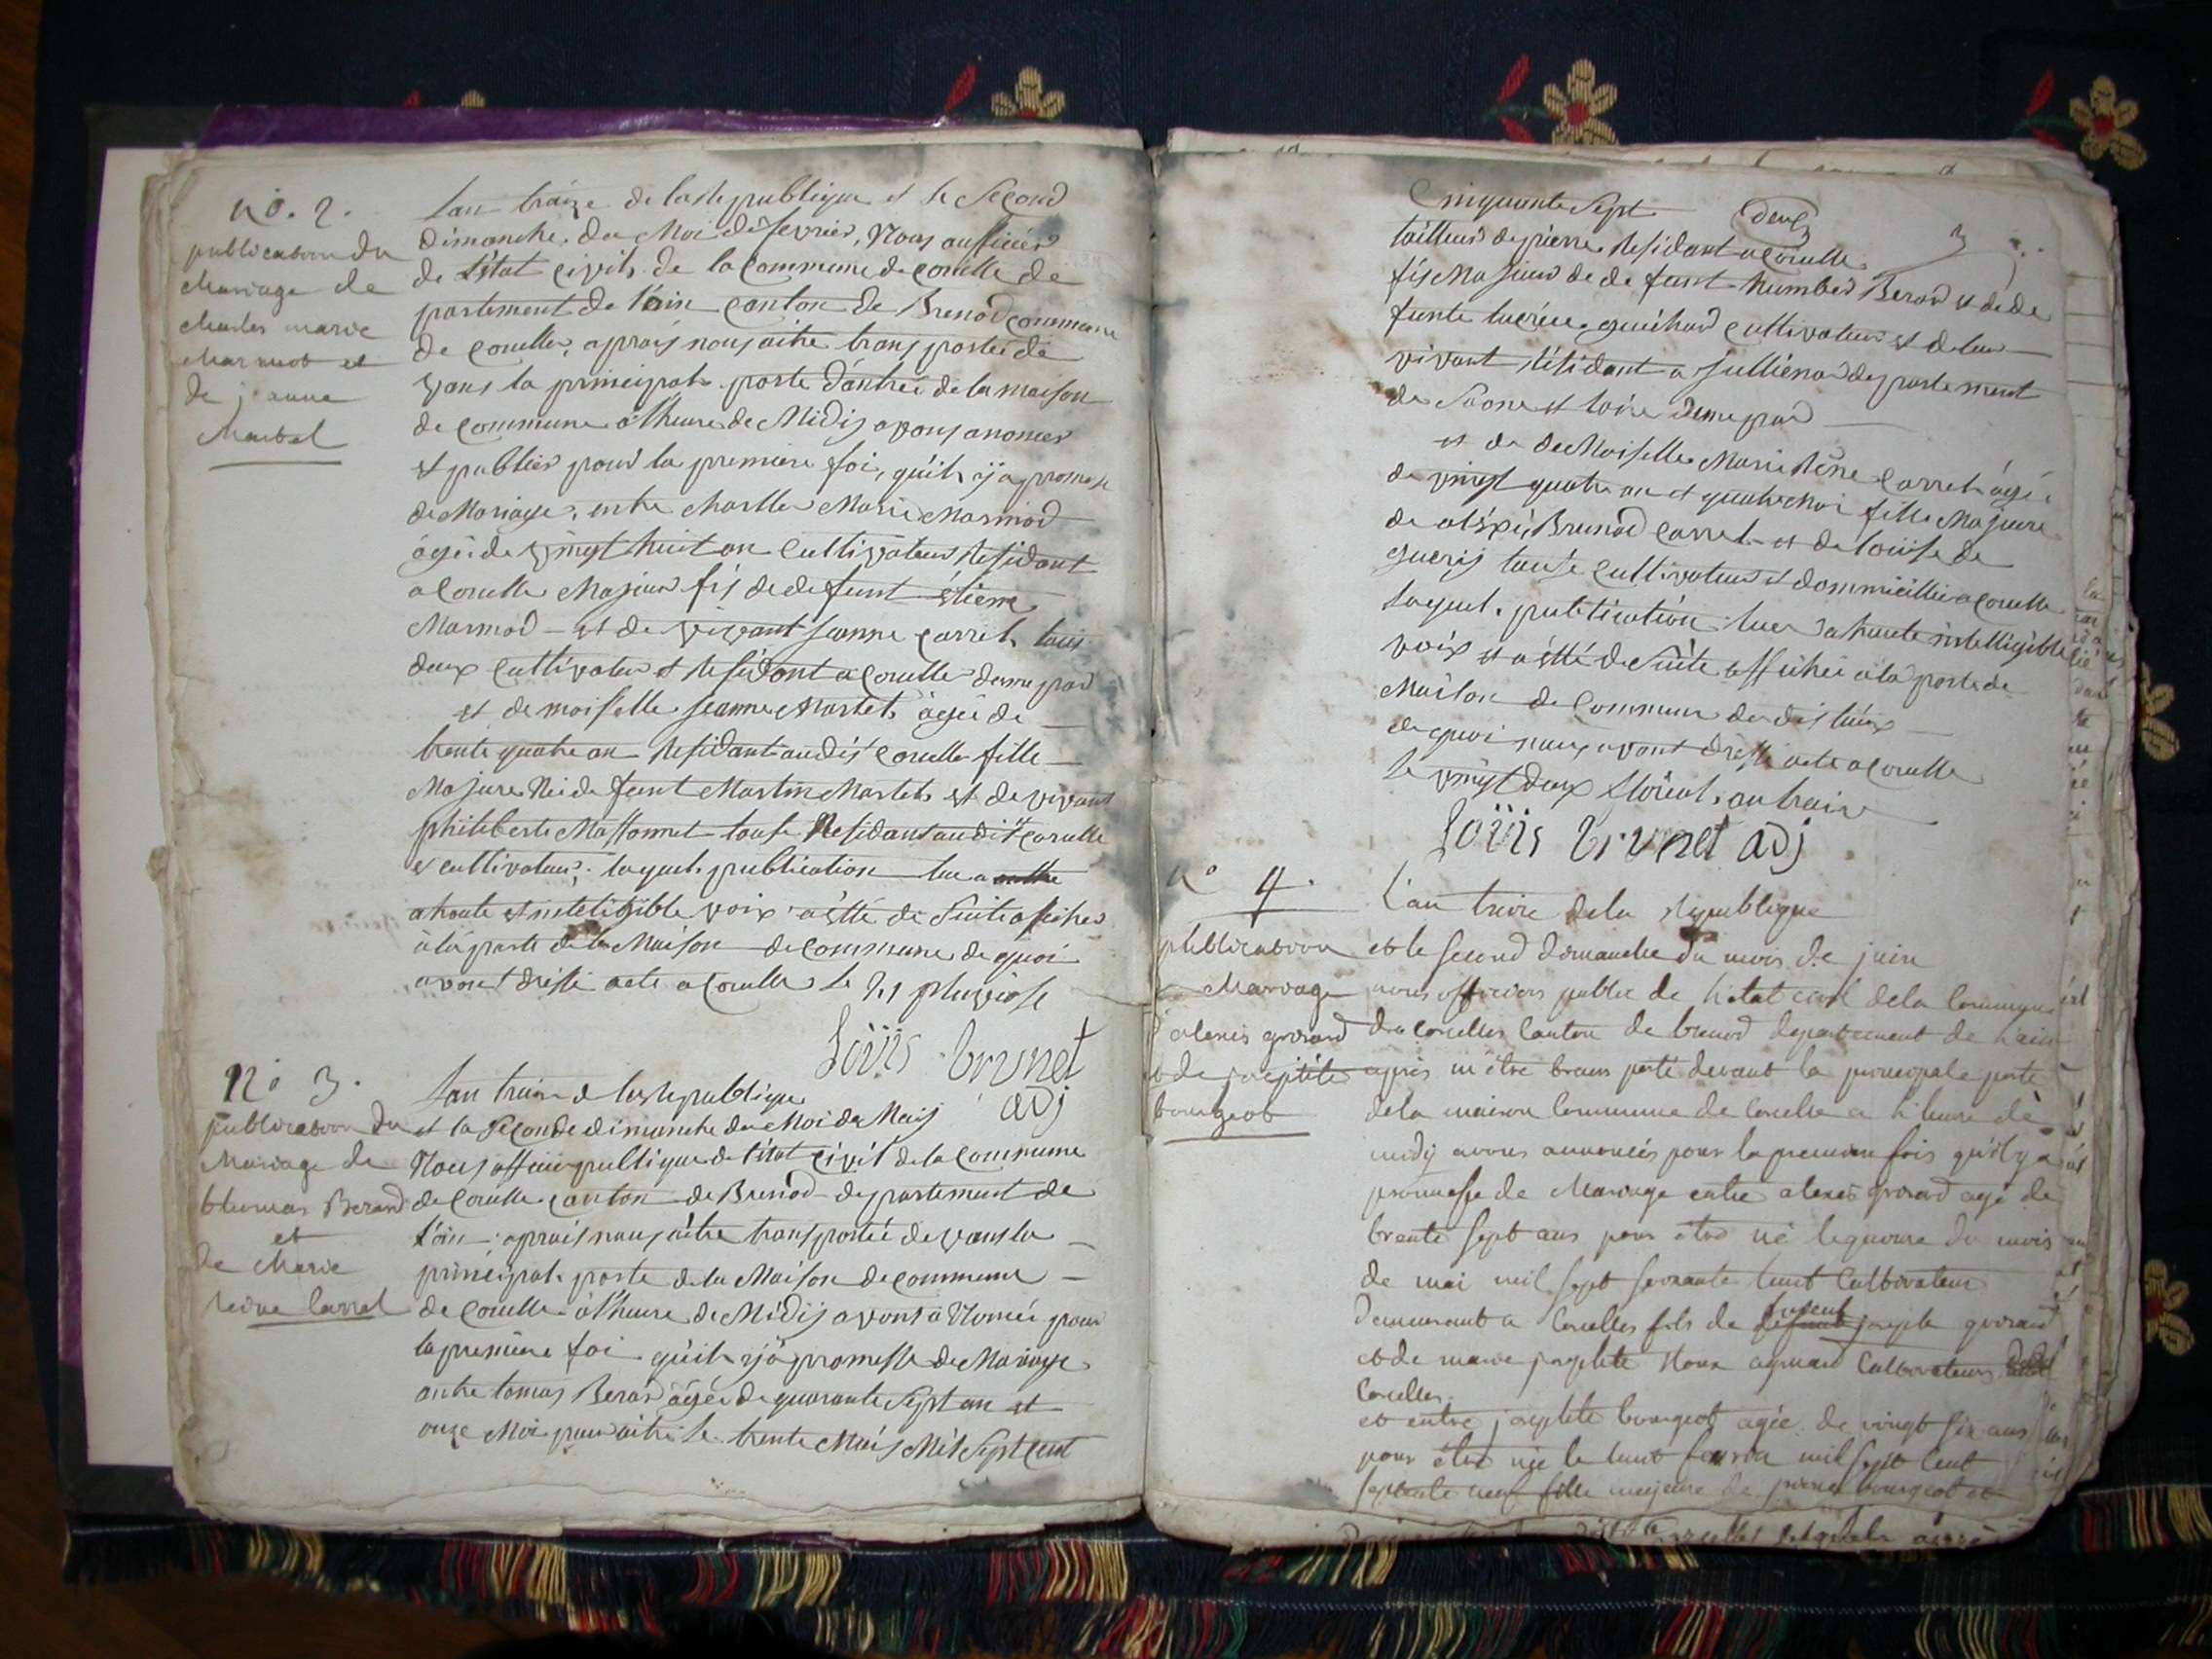 no. 2.
publication du
Mariage de
charles marie
Marmod et
de jeanne
Martel
Lan traize de la Republique et le Second
dimanche du Moi de fevrier, Nous aufficier
de l'état civil de la Commune de Corcelle de
partement de l'ain canton de Brenod commune
de Corcelle, aprais nous aitre transportée de
vans la principale porte d'antrée de la maison
de commune a l'heure de Midis avons anonces
et publier pour la premiere foi, quil y a promesse
de Mariage, entre Charlle Marie Marmod
agée de vingt huit an Cultivateur Residant
a Corcelle Majeur fis de defunt étiene
Marmod et de vivant Jeanne Carrel tous
deux Cultivateur et Residant a Corcelle
et demoiselle Jeanne Martel agée de
trente quatre an Residant audit Corcelle fille
Majeure de feunt Martin Martel et de vivant
philiberte Massonnet tous Residant audit Corcelle
et cultivateur, laquele publication lue a
a haute et inteligible voix a etté de Suite afichee
a la porte de la Maison de commune de quoi
avont dressé acte a Corcelle le 21 pluviose
Loüis brunet
adj
No 3.
publication du
Mariage de
thomas Berard
et
de Marie
Reine Carrel
Lan traize de la Republique
et la Seconde dimanche du Moi de Mai
Nous officié publique de l'état civil de la Commune
de Corcelle canton de Brenod departement de
l'ain aprais nous aitre transportée devans la
principale porte de la Maison de commune
de Corcelle a l'heure de Midis avont anonceé pour
la premiere foi quil y a promesse de Mariage
antre tomas Berard agée de quarante Sept an et
onze Moi pour aitre le trente Mai Mil Sept cent
Cinquante Sept
deux
3
tailleur de pierre Residant a Corcelle
fis Majeur de de feunt humber Berard et de de
funte lucrece guichard Cultivateur et de leur
vivant résidant a Jullienas departement
de Saone et loire
et de deMoiselle Marie Rene Carrel agée
de vingt quatre an et quatre Moi fille Majeure
de Brunod Carrel et de loüise de
Cultivateur et dommicillié a Corcelle
laquel publication lue a haute intelligible
voix et a etté de Suite affichée a la porte de
Maison de Commune
de quoi nous avont dressé acte a Corcelle
le vingt deux floréal an traize
Loüis brunet adj
no 4.
publication
Mariage
d'alexis girard
et de josephte
bourgeot
L'an treize de la Republique
et le second dimanche du mois de juin
nous officiers public de l'etat civil de la Commune
de Corcelles Canton de brenod departement de l'ain
après m'être transporté devant la principale porte
de la maison Commune de Corcelle a l'heure de
midy avons annoncés pour la premiere fois qu'il y a
promesse de Mariage entre alexis girard agé de
trente sept ans pour être né le quinze du mois
de mai mil sept soixante huit Cultivateur
demeurant a Corcelles fils de joseph girard
et de marie josephte Cultivateurs
Corcelles.
et entre josephte bourgeot agée de vingt six ans
pour être née le huit mil sept Cent
septante neuf fille majeure de pierre bourgeot et